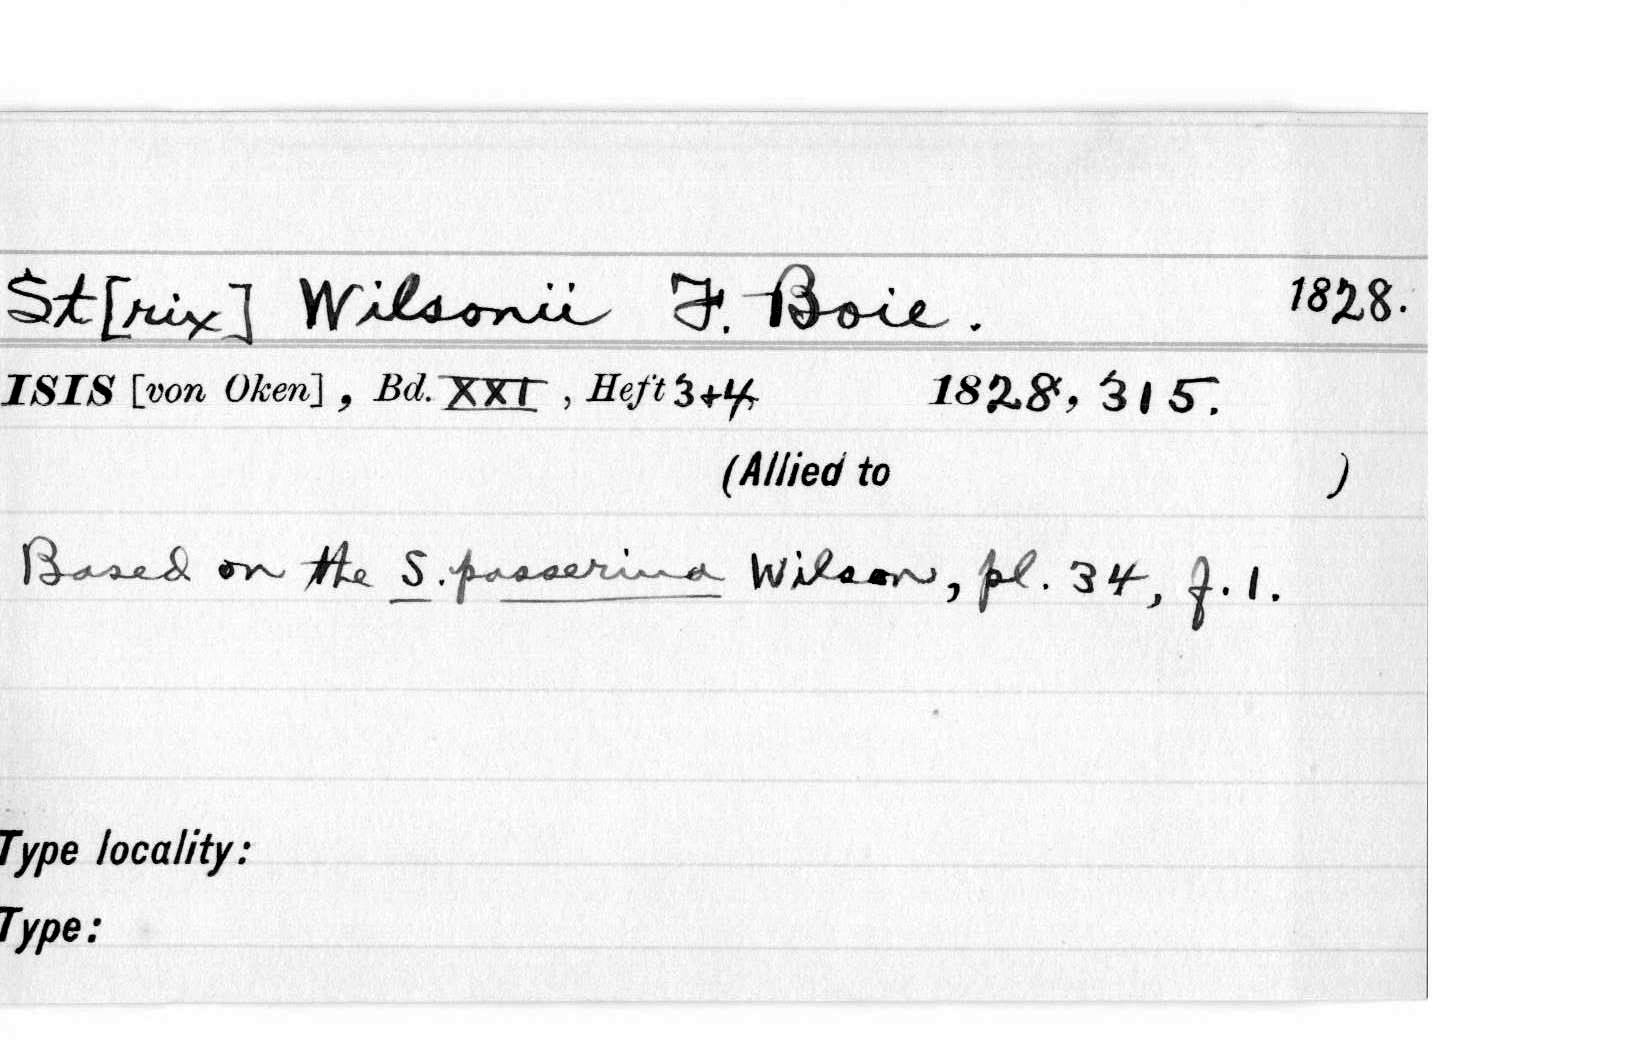 St[rix] Wilsonii F. Boie. 1828.
ISIS [von Oken], Bd. XXI, Heft 3+4 1828, 315.
(Allied to )
Based on the S. passerina Wilson, pl. 34, f. 1.
Type locality:
Type: